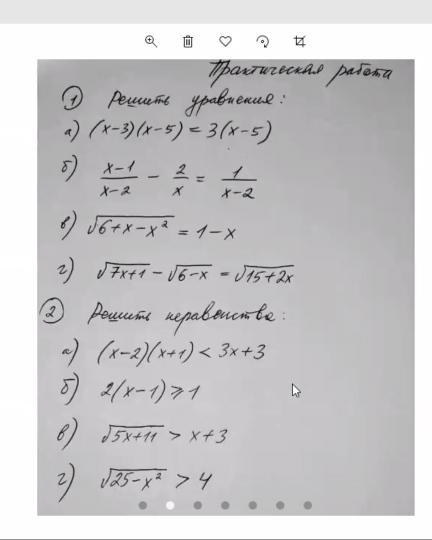 Практическая работа
① Решить уравнения:
а) (x-3)(x-5) = 3(x-5)
б) \frac{x-1}{x-2} - \frac{2}{x} = \frac{1}{x-2}
в) √(6+x-x²) = 1-x
г) √(7x+1) - √(6-x) = √(15+2x)
② Решить неравенства:
а) (x-2)(x+1) < 3x+3
б) 2(x-1) ⩾ 1
в) √(5x+11) > x+3
г) √(25-x²) > 4